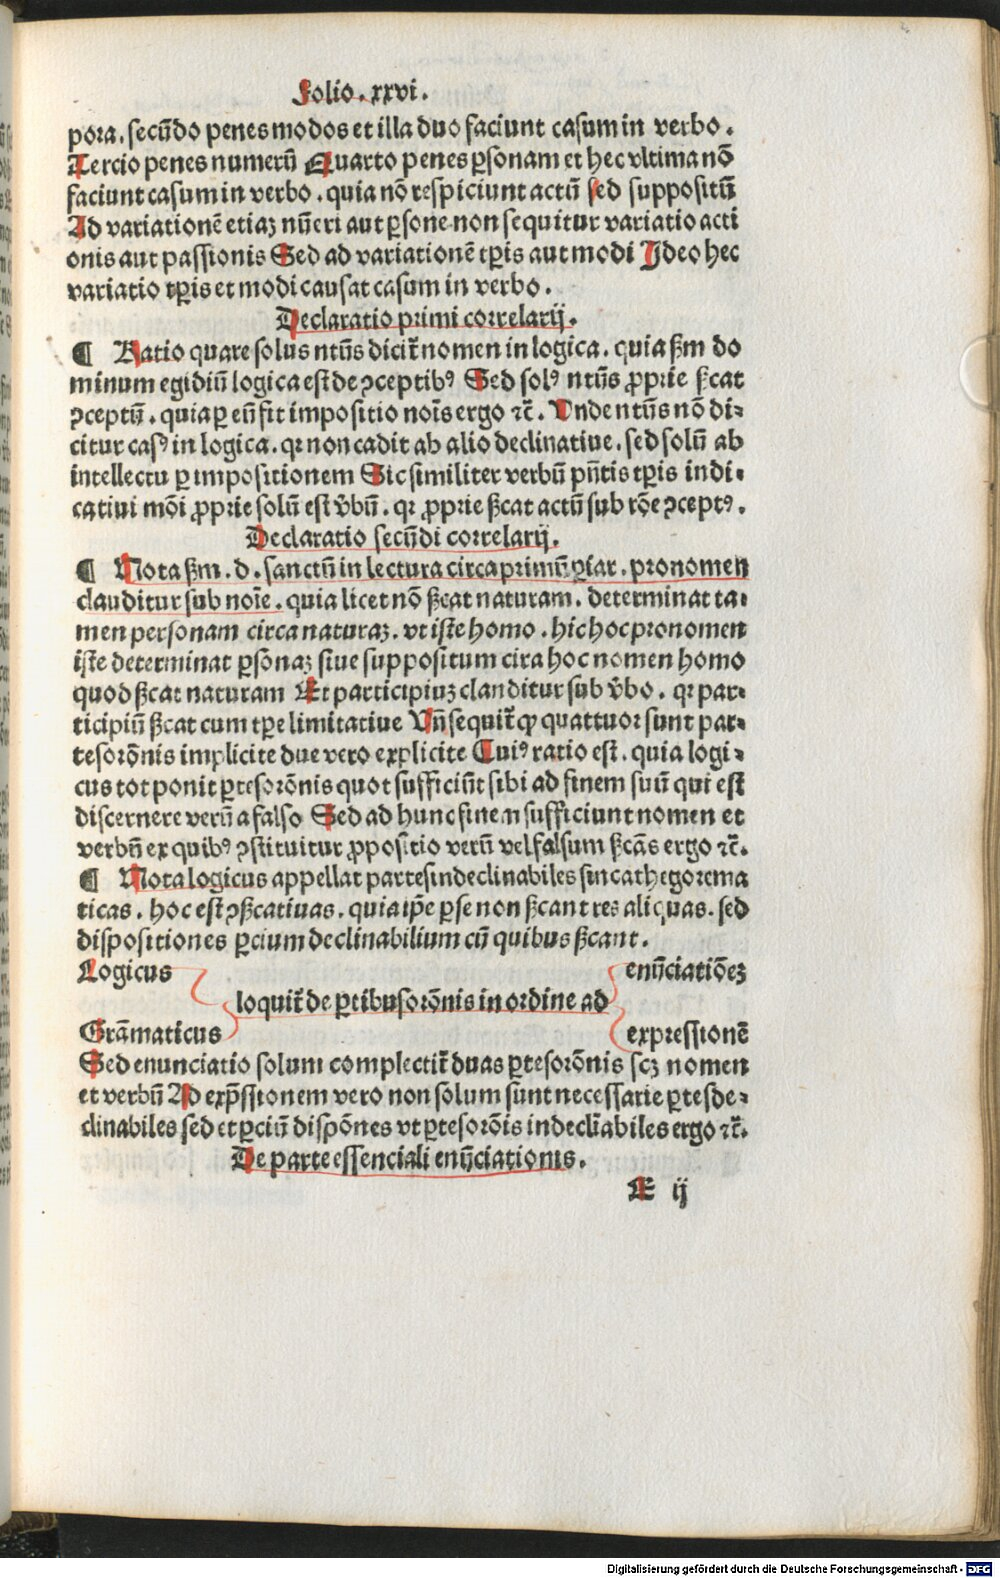 Folio. xxvi.
pora. secūdo penes modos et illa duo faciunt casum in verbo.
Tercio penes numerū Quarto penes ꝑsonam et hec vltima nō
faciunt casum in verbo. quia nō respiciunt actū sed suppositū
Ad variationē etiaꝫ nūeri aut ꝑsone non sequitur variatio acti
onis aut passionis Sed ad variationē tꝑis aut modi Ideo hec
variatio tꝑis et modi causat casum in verbo.
Declaratio primi correlarij.
¶ Ratio quare solus ntūs dicit̄ nomen in logica. quia ẜm do
minum egidiū logica est de ꝯceptibꝰ Sed solꝰ ntūs ꝓprie ẜcat
ꝯceptū. quia ꝑ eū fit impositio noīs ergo ⁊c̄. Unde ntūs nō di⸗
citur casꝰ in logica. qꝛ non cadit ab alio declinatiue. sed solū ab
intellectu ꝑ impositionem Sic similiter verbū pn̄tis tꝑis indi⸗
catiui mōi ꝓprie solū est v̄bū. qꝛ ꝓprie ẜcat actū sub rōe ꝯceptꝰ.
Declaratio secūdi correlarij.
¶ Nota ẜm. d. sanctū in lectura circa primū pꝰiar. pronomen
clauditur sub noīe. quia licet nō ẜcat naturam. determinat ta⸗
men personam circa naturaꝫ. vt iste homo. hic hoc pronomen
iste determinat ꝑsonaꝫ siue suppositum cira hoc nomen homo
quod ẜcat naturam Et participiuꝫ clanditur sub v̄bo. qꝛ par⸗
ticipiū ẜcat cum tꝑe limitatiue Vn̄ sequit̄ ꝙ quattuor sunt par⸗
tes orōnis implicite due vero explicite Cuiꝰ ratio est. quia logi⸗
cus tot ponit ꝑtes orōnis quot sufficiūt sibi ad finem suū qui est
discernere verū a falso Sed ad hunc finem sufficiunt nomen et
verbū ex quibꝰ ꝯstituitur ꝓpositio verū vel falsum ẜcās ergo ⁊c̄.
¶ Nota logicus appellat partes indeclinabiles sincathegorema
ticas. hoc est ꝯẜcatiuas. quia ip̄e ꝑ se non ẜcant res aliquas. sed
dispositiones ꝑcium declinabilium cū quibus ẜcant.
Logicus
enūciatiōeꝫ
loquit̄ de ꝑtibus orōnis in ordine ad
Grāmaticus
expressionē
Sed enunciatio solum complectit̄ duas ꝑtes orōnis scꝫ nomen
et verbū Ad exp̄ssionem vero non solum sunt necessarie ꝑtes de⸗
clinabiles sed et ꝑciū dispōnes vt ꝑtes orōis indecliābiles ergo ⁊c̄.
De parte essenciali enūciationis.
E ij
Digitalisierung gefördert durch die Deutsche Forschungsgemeinschaft - DFG